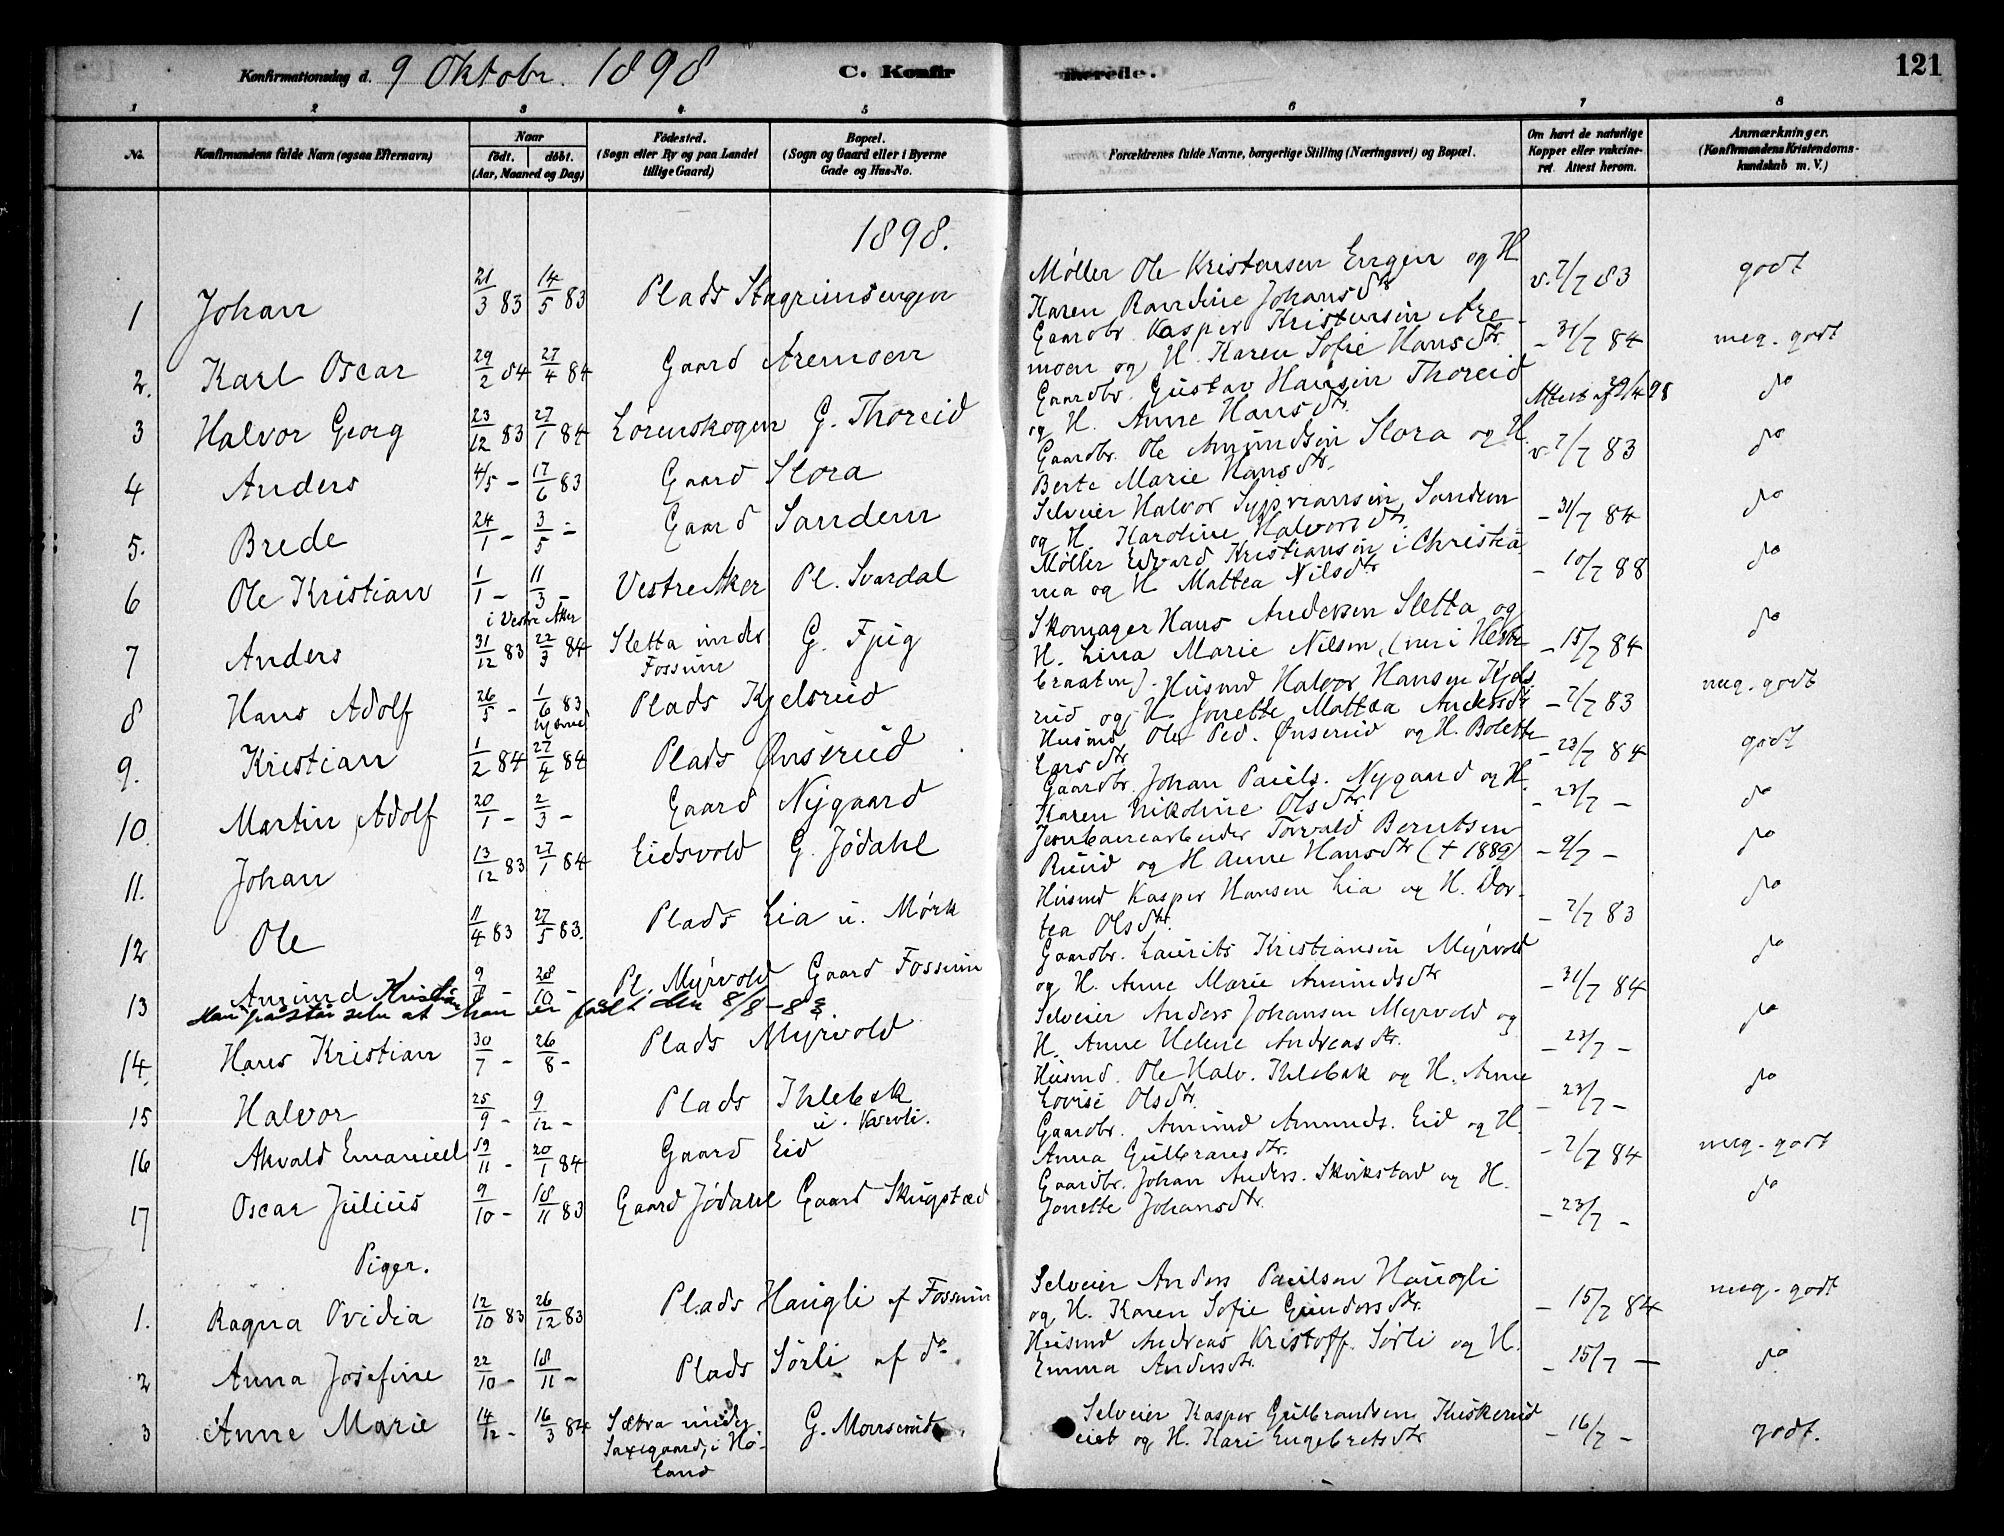 Konfirmationsdag d. 9 Oktobr. 1898 C. Konfirmerede. 121
1 2 3 4 5 6 7 8
No. Konfirmandens fulde Navn (ogsaa Efternavn) Naar födt. döbt. (Aar, Maaned og Dag) Födested. (Sogn eller By og paa Landet tillige Gaard) Bopæl. (Sogn og Gaard eller i Byerne Gade og Hus-No. Forældrenes fulde Navne, borgerlige Stilling (Næringsvei) og Bopæl. Om havt de naturlige Kopper eller vakcineret. Attest herom. Anmærkninger. (Konfirmandens Kristendomskundskab m. V.)
1898.
1 Johan 21/3 83 14/5 83 Plads Stagrimsengen Møller Ole Kristensen Engen og H. v. 7/7 83 godt
Karen Randine Johansdtr
2. Karl Oscar 29/2 84 27/4 84 Gaard Aremoen Gaardbr. Kasper Kristensen Are- – 31/7 84 meg. godt
moen og H. Karen Sofie Hansdtr.
3 Halvor Georg 23/12 83 27/1 84 Lørenskogen G. Thoreid Gaardbr. Gustav Hansen Thoreid Attest af 29/4 98 do
og H. Anne Hansdtr.
4 Anders 4/5 – 17/6 83 Gaard Slora Gaardbr. Ole Amundsen Slora og H. v. 7/7 83 do
Berte Marie Hansdtr.
5. Brede 24/1 – 3/5 – Gaard Sandem Selveier Halvor Sypriansen Sandem – 31/7 84 do
og H. Karoline Halvorsdtr.
6 Ole Kristian 1/1 – 11/3 – Vestre Aker Pl. Svardal Møller Edvard Kristiansen i Christia – 10/7 88 do
i Vestre Aker nia og H Mattea Nilsdtr
7 Anders 31/12 83 22/3 84 Sletta under Fossum G. Fjug Skomager Hans Andersen Sletta og – 15/7 84 do
H. Lina Marie Nilsen, (nu i
braaten).
8 Hans Adolf 26/5 – 1/6 83 Plads Kjelsrud Husmd Halvor Hansen Kjels – 7/7 83 meg. godt
rud og H. Jonette Mattea Andersdtr
9. Kristian 1/2 84 27/4 84 Plads Ønserud Husmd. Ole Ped. Ønserud og H. Bolette – 23/7 84 godt
Larsdtr.
10. Martin Adolf 20/1 – 2/3 – Gaard Nygaard Gaardbr. Johan Pauls. Nygaard og H. – 23/7 – do
Karen Nikoline Olsdtr.
11. Johan 13/12 83 27/1 84 Eidsvold G. Jødahl Jernbanearbeider Torvald Berntsen – 9/7 – do
Ruud og H Anne Hansdtr (+ 1889)
12 Ole 11/4 83 27/5 83. Plads Lia u. Mørk Husmd Kasper Hansen Lia og H. Dor- – 7/7 83 do
tea Olsdtr.
13 Amund Kristian 9/9 – 28/10 – Pl. Myrvold Gaard Fossum Gaardbr. Laurits Kristiansen Myrvold – 31/7 84 do
Han påstår selv at han er født den 8/8–83 og H. Anne Marie Amundsdtr
14. Hans Kristian 30/7 – 26/8 – Plads Myrvold Selveier Anders Johansen Myrvold og – 23/7 – do
H. Anne Helene Andreasdtr.
15 Halvor 25/9 – 9/12 – Plads Ihlebæk Husmd. Ole Halv. Ihlebæk og H. Anne – 23/7 – do
Lovise Olsdtr.
16 Akvald Emanuel 19/11 – 20/1 84 Gaard Eid Gaardbr. Amund Amunds. Eid og H. – 7/7 84 meg. godt
Anna Gulbransdtr.
17 Oscar Julius 9/10 – 18/11 83 Gaard Jødahl Gaard Skugstad Gaardbr. Johan Anders. og H. – 23/7 – do
Jonette Johansdtr.
Piger.
1. Ragna Ovidia 12/10 83 26/12 83 Plads Haugli af Fossum Selveier Anders Paulsen Haugli – 15/7 84 meg. godt
og H. Karen Sofie Gundersdtr.
2 Anna Josefine 22/10 – 18/11 – Plads Sørli af do Husmd Andreas Kristoff. Sørli og H. – 15/7 – do
Emma Andersdtr.
3 Anne Marie 14/12 – 16/3 84 Sætra under G. Monserud Selveier Kasper Gulbrandsen – 16/7 – godt.
Saxegaard, i Hø- eiet og H. Kari Engebretsdtr
land